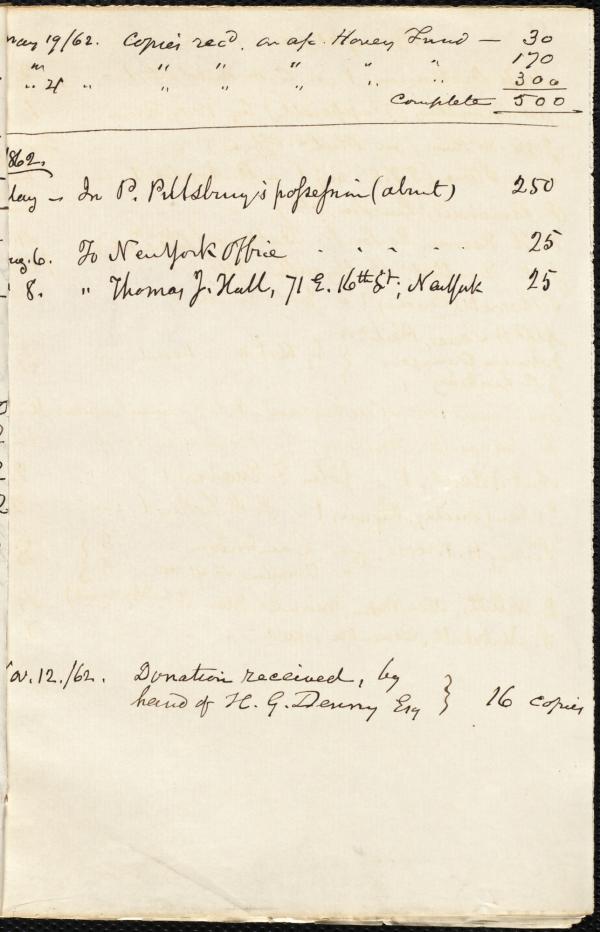 may 19/62. Copies rec'd. on a/c. Hovey Fund — 30
" " " " " " 170
" 24 " " " " " " 300
Complete 500
1862.
May — In P. Pillsbury's possession (about) 250
Aug. 6. To New York Office . . . . 25
" 8. " Thomas J. Hall, 71 E. 16th St; New York 25
Nov. 12./62. Donation received, by
hand of H. G. Denny Esq } 16 copies